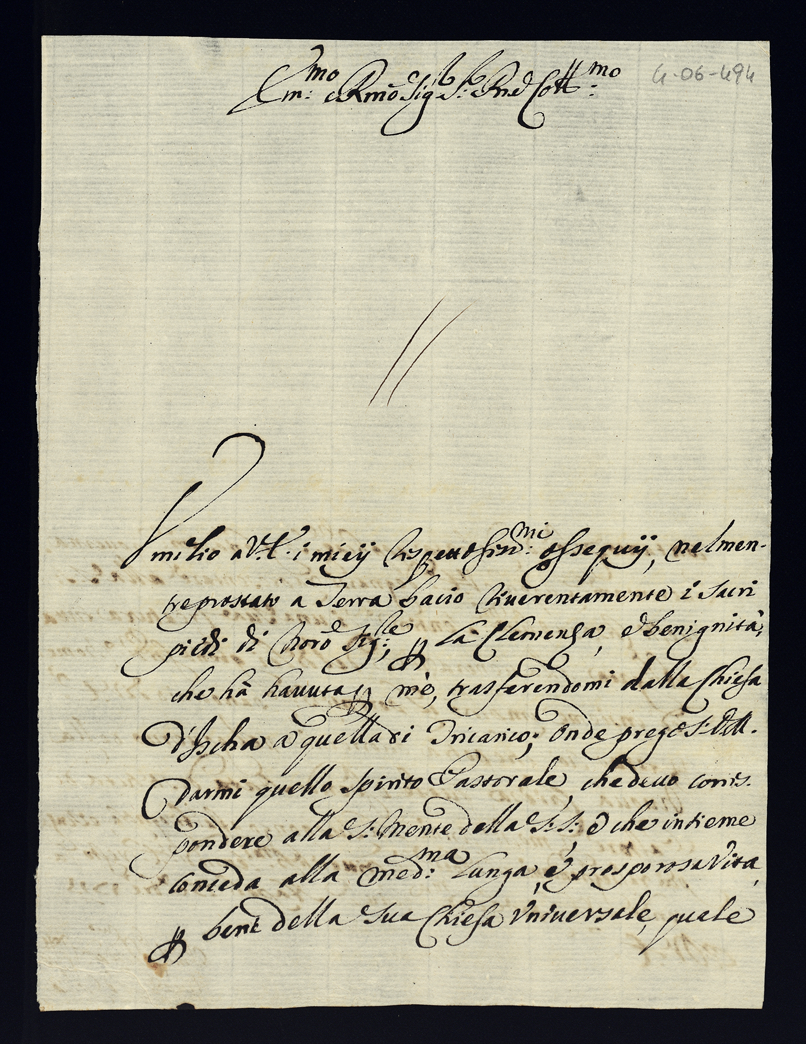 Em:mo e Rmo Sig.r S.r Pne Coll:mo
4-06-494
Umilio a V.E. i mieij rispettosissi:mi ossequij, nel men-
tre prostato a Terra bacio riverentamente i sacri
piedi di Nro Sig:re, per la Clemenza, e benignità,
che hà havuta per mè, trasferendomi dalla Chiesa
d'Ischa a quella di Tricarico; Onde prego S.D.M.
darmi quello spirito Pastorale, che devo corris-
pondere alla S: Mente della S:S: e che insieme
conceda alla med:ma lunga, e prosperosa Vita,
per bene della sua Chiesa Universale, quale